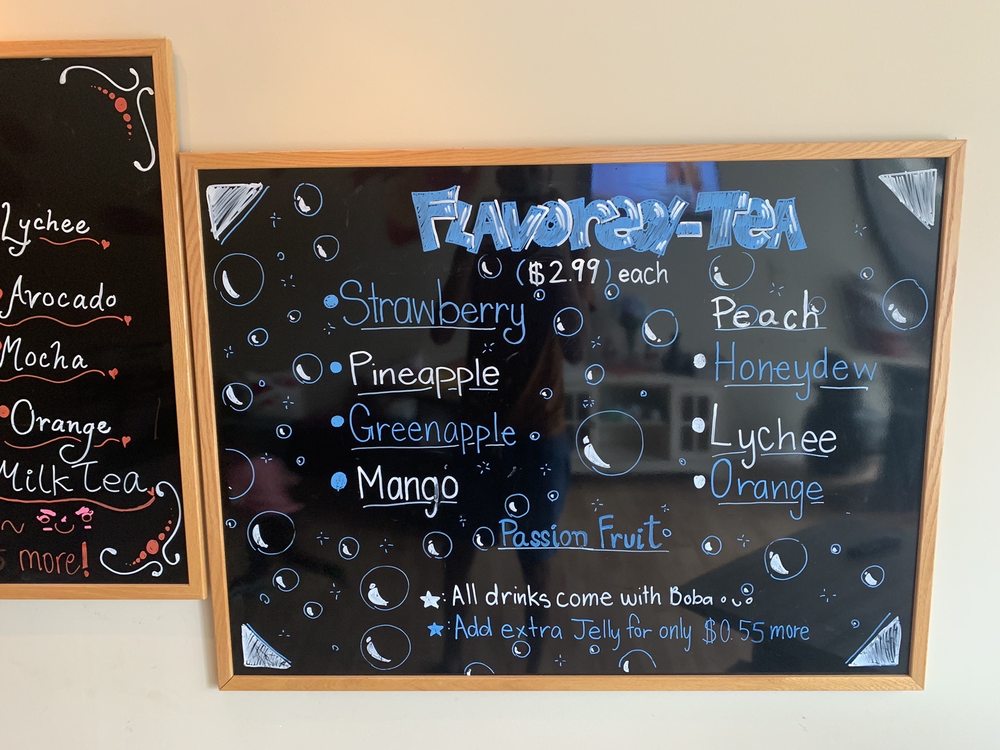 Lychee
Avocado
Mocha
Orange
Milk Tea
more!
FLAVORED-TEA
($2.99) each
Strawberry
Pineapple
Greenapple
Mango
Peach
Honeydew
Lychee
Orange
Passion Fruit
★: All drinks come with Boba
★: Add extra Jelly for only $0.55 more